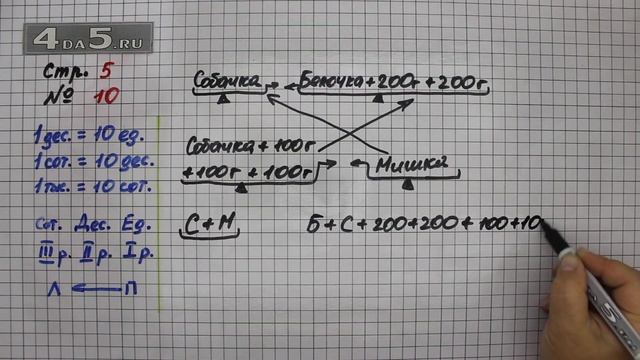 4DA5.RU
Стр. 5
№ 10
1 дес. = 10 ед.
1 сот. = 10 дес.
1 тыс. = 10 сот.
Сот. Дес. Ед.
III р. II р. I р.
Л ← П
Собачка → ← Белочка + 200г + 200г
Собачка + 100г
+ 100г + 100г → ← Мишка
С + М
Б + С + 200 + 200 + 100 + 10